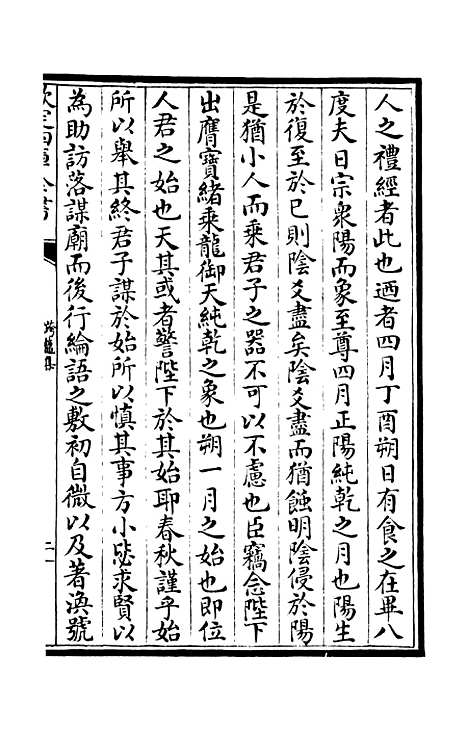 人之禮經者此也迺者四月丁酉朔日有食之在畢八
度夫日宗衆陽而象至尊四月正陽純乾之月也陽生
於復至於巳則陰爻盡矣陰爻盡而猶蝕明陰侵於陽
是猶小人而乘君子之器不可以不慮也臣竊念陛下
出膺寶緒乘龍御天純乾之象也朔一月之始也即位
人君之始也天其或者警陛下於其始耶春秋謹乎始
所以舉其終君子謀於始所以慎其事方小毖求賢以
為助訪落謀廟而後行綸語之敷初自微以及著渙號
欽定四庫全書